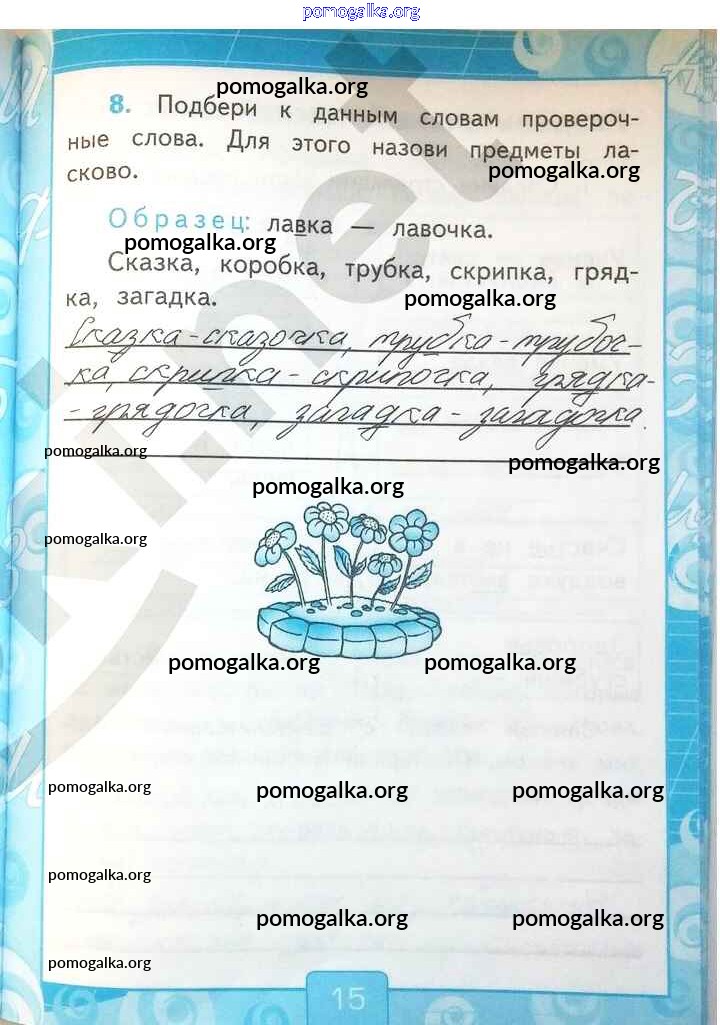 pomogalka.org
pomogalka.org
8. Подбери к данным словам провероч-
ные слова. Для этого назови предметы ла-
сково.
pomogalka.org
Образец: лавка — лавочка.
pomogalka.org
Сказка, коробка, трубка, скрипка, гряд-
ка, загадка.
pomogalka.org
Сказка - сказочка, трубка - трубоч-
ка, скрипка - скрипочка, грядка-
- грядочка, загадка - загадочка.
pomogalka.org
pomogalka.org
pomogalka.org
pomogalka.org
pomogalka.org pomogalka.org
pomogalka.org
pomogalka.org pomogalka.org
pomogalka.org
pomogalka.org pomogalka.org
pomogalka.org
15